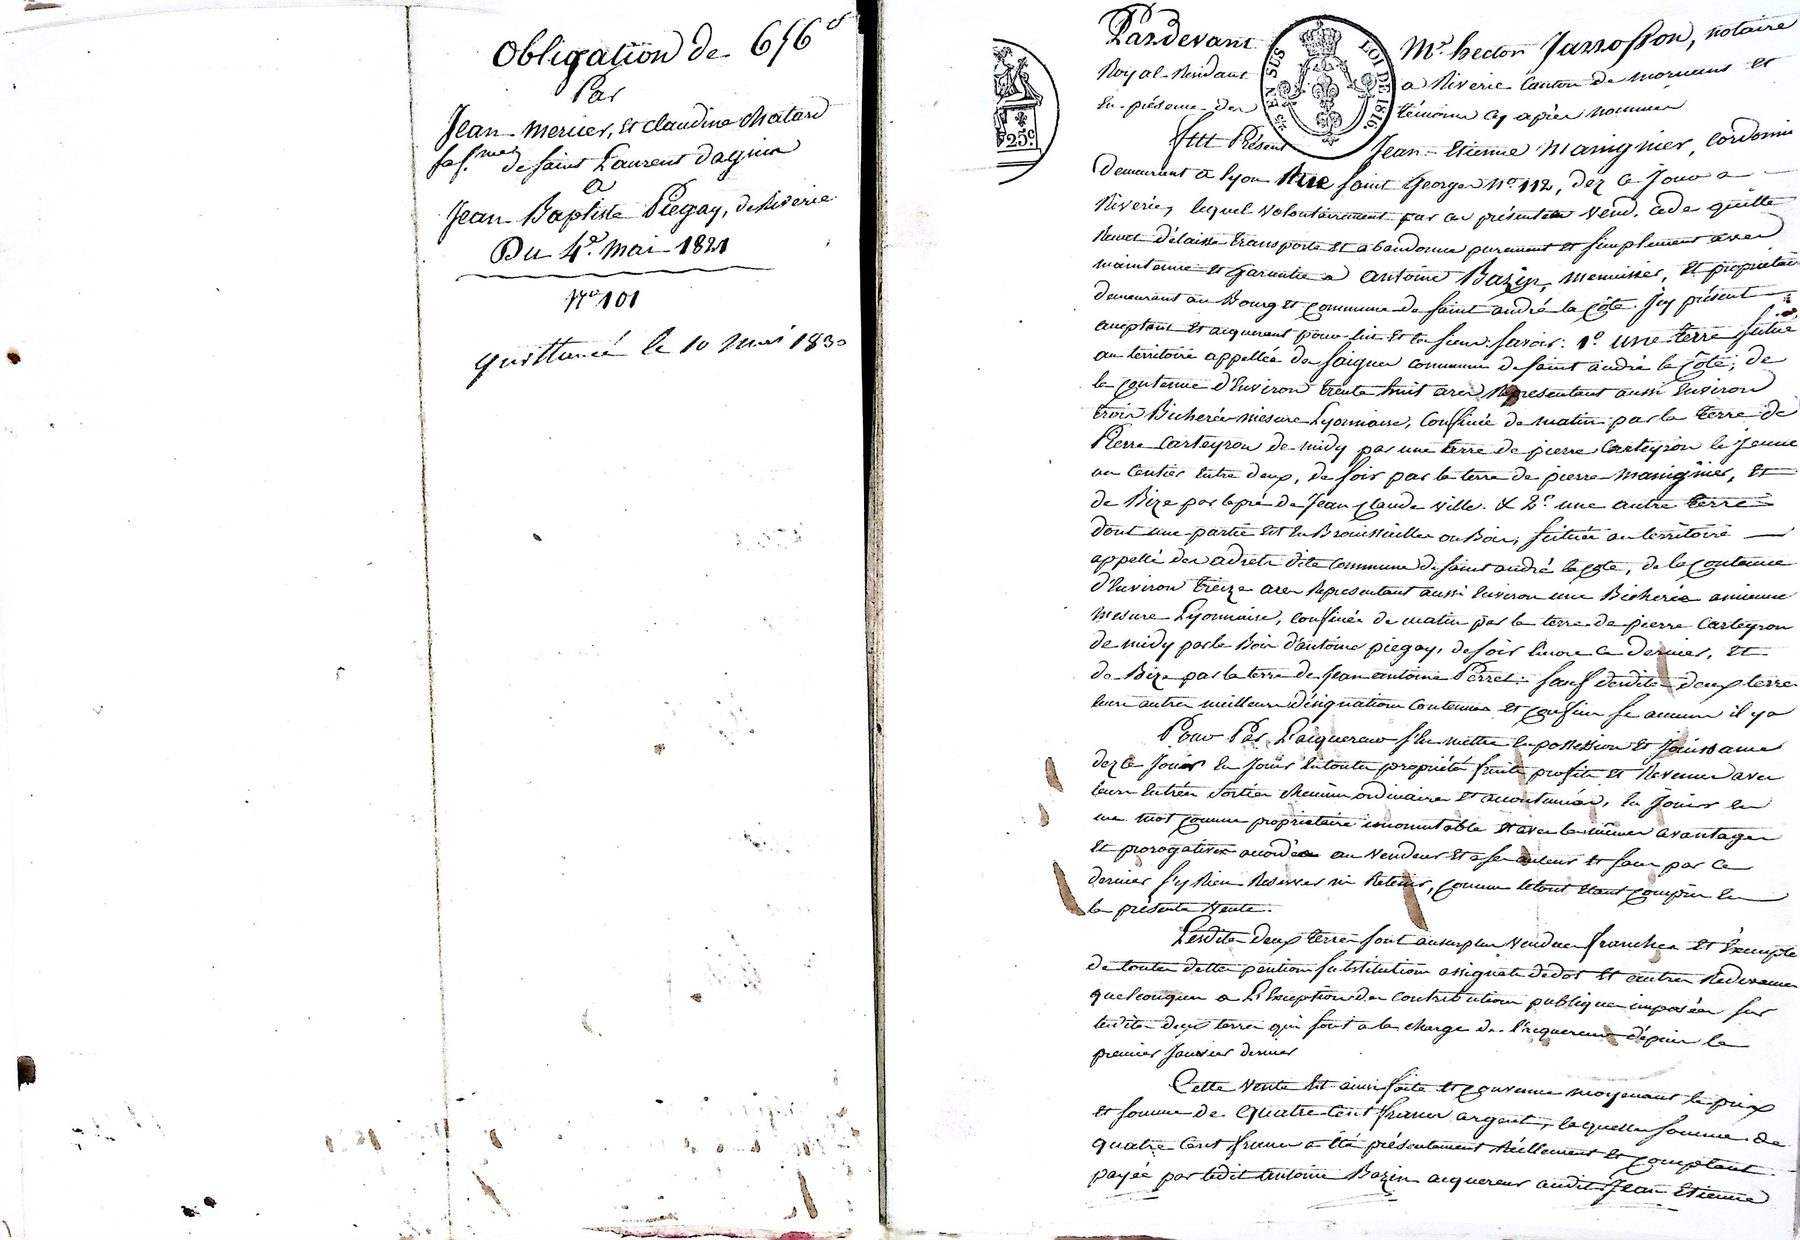 Obligation de 656 f
Par
Jean Mercier, et Claudine Chatard
sa f.me de Saint Laurent dagnin
a
Jean Baptiste Piegay, de Riverie
Du 4e. mai 1821
No. 101
quittancé le 10 mai 1830
Pardevant Me. hector Jarrosson, notaire
Royal Résidant a Riverie Canton de mornant et
En présence des témoins cy après nommés
EN SUS LOI DE 1816.
25c.
Fut Présent Jean Etienne Manignier, cordonnie
demeurant a Lyon Rue Saint George No. 112, dez ce Jour a
Riverie, lequel volontairement par ces présentes vend, cede quitte
Remet délaisse transporte et abandonne purement et simplement avec
maintenue et Garantie a antoine Bazin, menuisier, et propriétaire
demeurant au Bourg et commune de Saint andré la Côte Icy présent
acceptant et acquerant pour lui et les siens. Savoir: 1o. une terre située
au territoire appellée des Saignes commune de Saint andré la Côte, de
la contenue d'Environ trente huit ares Représentant aussi Environ
trois Bicherées mesure Lyonnaise, Confinée de matin par la terre de
Pierre Carteyron de midy par une terre de pierre Carteyron le Jeune
un Sentier Entre deux, de Soir par la terre de pierre Manignier, et
de Bize par le pré de Jean Claude Ville. & 2o. une autre terre
dont une partie est En Broussailles ou Bois, Située au territoire
appellé des adrets dite Commune de Saint andré la Côte, de la Contenue
d'Environ treize ares Représentant aussi Environ une Bicherée ancienne
mesure Lyonnaise, confinée de matin par la terre de pierre Carteyron
de midy par le Bois d'antoine piegay, de soir Encore ce dernier, et
de Bize par la terre de Jean antoine Perret. Sauf desdites deux terres
leurs autres meilleures désignations Contenues et Confins Se aucuns il y a
Pour Par L'acquereur s'En mettre En possession et Jouissance
dez ce Jour En Jouir En toute propriété fruits profits et Revenus avec
leurs Entrées Sorties chemins ordinaires et accoutumés, En Jouir En
un mot comme propriétaire incommutable et avec les mêmes avantages
et prérogatives accordés au vendeur et a ses auteurs et sans par ce
dernier s'y Rien Reserver ni Retenir, comme le tout Etant compris En
la présente Vente.
Lesdites deux terres sont ausurplus vendues franches et Exemptes
de toutes dettes pention substitution assignats de dot et autres Redevances
quelconques a L'Exception des Contributions publiques imposées sur
lesdites deux terres qui sont a la charge de l'acquereur dépuis le
premier Janvier dernier
Cette vente Est ainsi faite et convenue moyenant le prix
et somme de quatre Cent francs argent, laquelle Somme de
quatre Cent francs a été présentement Réellement et comptant
payée par ledit antoine Bazin acquereur audit Jean Etienne